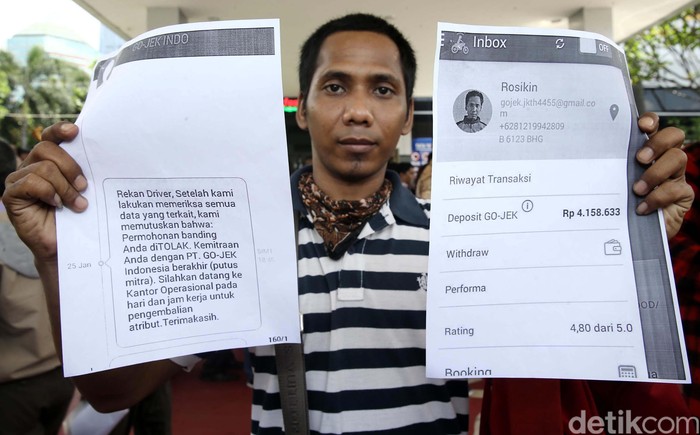 GO-JEK INDO
Rekan Driver, Setelah kami
lakukan memeriksa semua
data yang terkait, kami
memutuskan bahwa:
Permohonan banding
Anda diTOLAK. Kemitraan
Anda dengan PT. GO-JEK
Indonesia berakhir (putus
mitra). Silahkan datang ke
Kantor Operasional pada
hari dan jam kerja untuk
pengembalian
atribut.Terimakasih.
25 Jan
160/1
Inbox
OFF
Rosikin
gojek.jkth4455@gmail.co
m
+6281219942809
B 6123 BHG
Riwayat Transaksi
Deposit GO-JEK
Rp 4.158.633
Withdraw
Performa
Rating
4,80 dari 5.0
Booking
detikcom